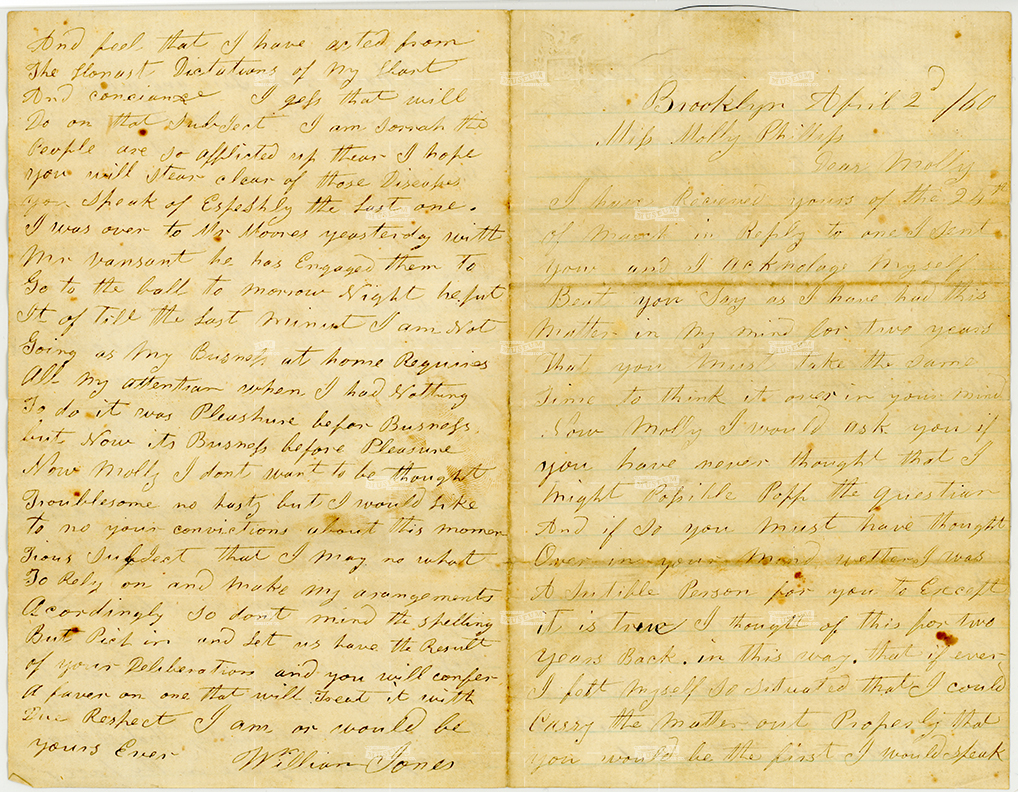 Brooklyn April 2d /60
Miss Molly Phillips
Dear Molly
I have Recieved yours of the 24th
of March in Reply to one I sent
you and I acknolage Myself
Beat you Say as I have had this
Matter in My mind for two years
that you Must take the same
Time to think it over in your mind
Now Molly I would ask you if
you have never thought that I
Might Possible Popp the question
And if So you Must have thought
Over in your Mind wether I was
A Sutible Person for you to Except
it is true I thought of this for two
years Back. in this way. that if ever
I felt Myself So Situated that I could
Carry the Matter out Properly that
you would be the first I would speak
And feel that I have acted from
The Honast Dictations of My Hart
And conciance I gess that will
Do on that Subject I am Sorrah the
People are so afflicted up thear I hope
you will Stear clear of those Diseases
you Speak of Espeshly the Last one.
I was over to Mr Moores yeasterday with
Mr Vansant he has Engaged them to
Go to the ball to morrow Night he put
It of Till the Last Minnut I am Not
Going as My Busness at home Requires
All My attention when I had Nothing
To do it was Pleashure befor Busness.
but Now its Busness before Pleasure
Now Molly I dont want to be thought
Troublesome no hasty but I would Like
to no your convictions about this momen
Tious Subject that I May no what
To Rely on and Make my arangements
Acordingly So dont mind the spelling
But Pich in and Let us have the Result
of your Deliberation and you will confer
A faver on one that will Treat it with
Due Respect I am or would be
yours Ever
William Jones